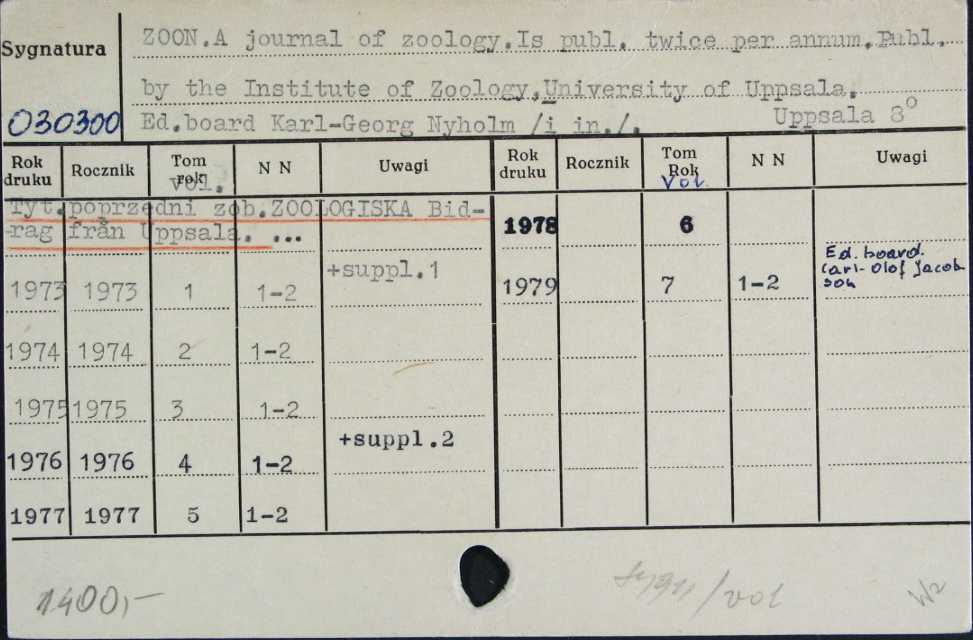 Sygnatura
ZOON.A journal of zoology.Is publ. twice per annum.Publ.
by the Institute of Zoology,University of Uppsala.
030300
Ed.board Karl-Georg Nyholm /i in./.
Uppsala 8°
Rok druku Rocznik Tom rok vol. N N Uwagi Rok druku Rocznik Tom Rok Vol. N N Uwagi
Tyt.poprzedni zob.ZOOLOGISKA Bid-
rag från Uppsala. ...
1978 6
+suppl.1
1973 1973 1 1-2
1979 7 1-2
Ed. board.
Carl-Olof Jacob
son
1974 1974 2 1-2
1975 1975 3 1-2
+suppl.2
1976 1976 4 1-2
1977 1977 5 1-2
1400,-
/vol